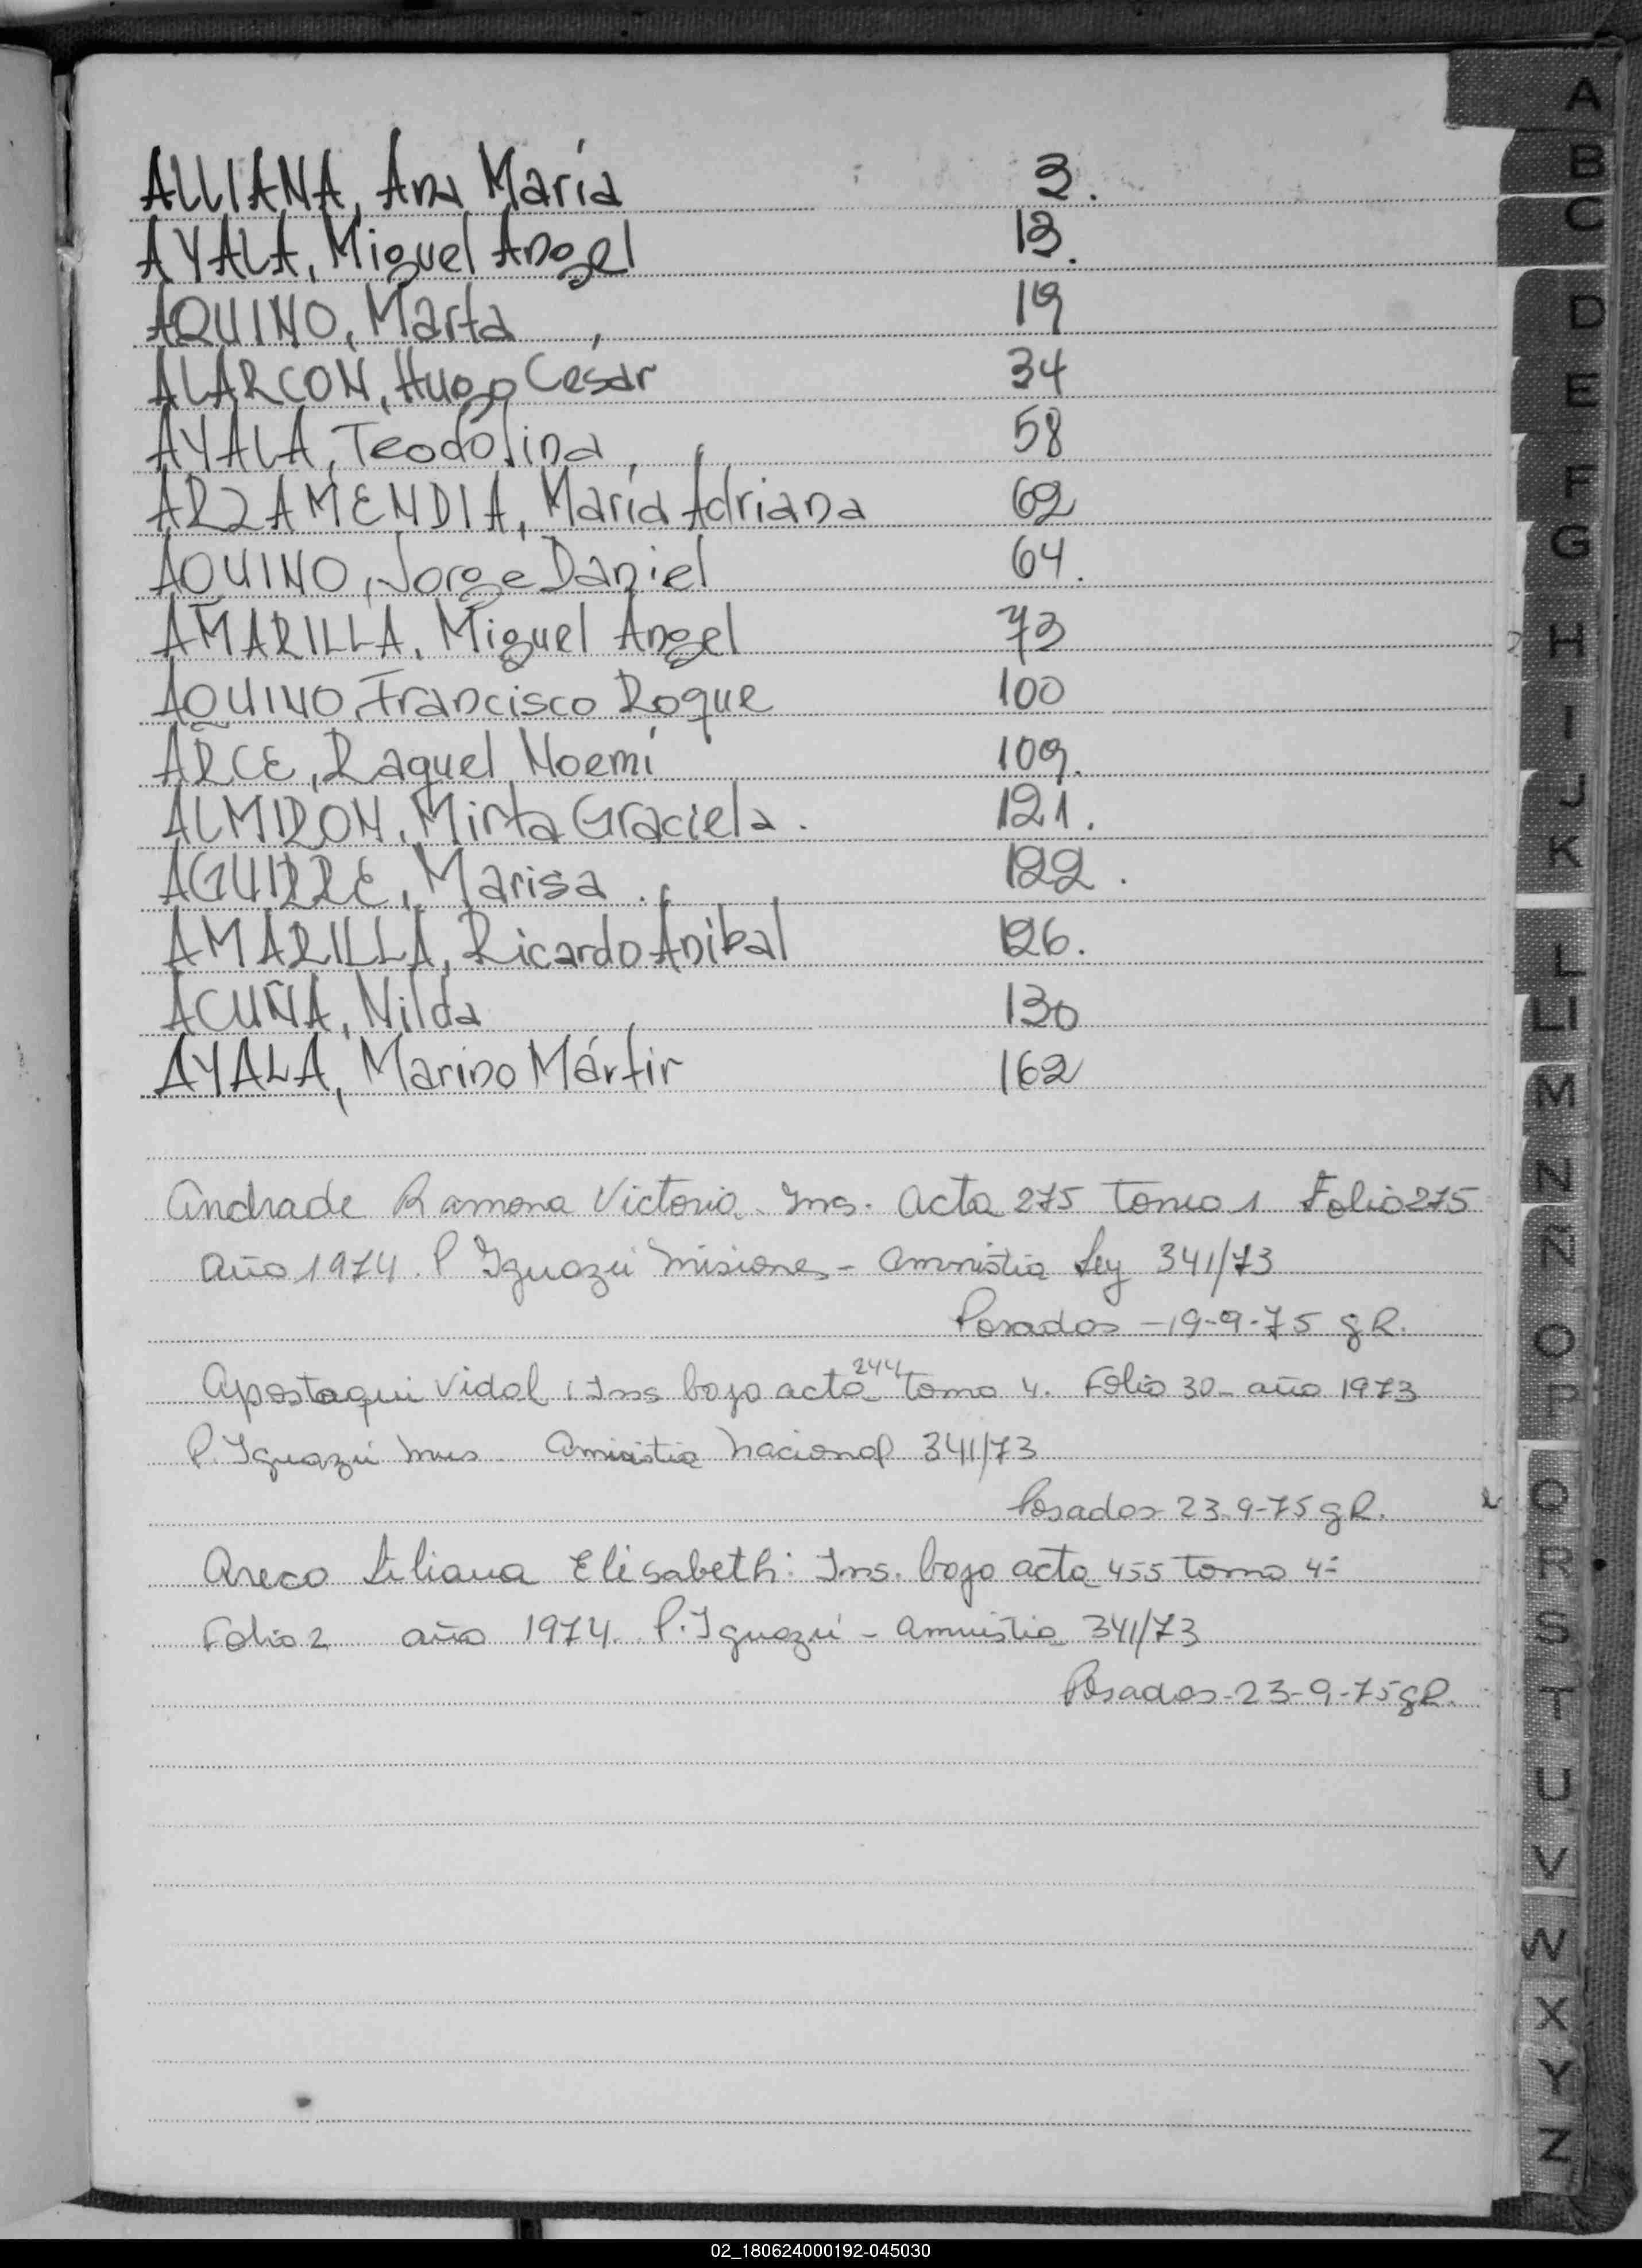 ALLIANA, Ana María 3.
AYALA, Miguel Angel 13.
AQUINO, Marta 19
ALARCON, Hugo César 34
AYALA, Teodolina 58
ARZAMENDIA, María Adriana 62
AQUINO, Jorge Daniel 64.
AMARILLA, Miguel Angel 73
AQUINO, Francisco Roque 100
ARCE, Raquel Noemí 109.
ALMIRON, Mirta Graciela. 121.
AGUIRRE, Marisa. 122.
AMARILLA, Ricardo Aníbal 126.
ACUÑA, Nilda 130
AYALA, Marino Mártir 162
Andrade Ramona Victoria. Ins. Acta 275 Tomo 1 Folio 275
año 1974. P Iguazú Misiones - Amnistia Ley 341/73
Posadas - 19-9-75 gR.
Apostaqui Vidal: Ins bajo acta 244 tomo 4. Folio 30- año 1973
P. Iguazú Mnes. Amnistia Nacional 341/73
Posadas 23-9-75 gR.
Areco Liliana Elisabeth: Ins. bajo acta 455 tomo 4-
Folio 2 año 1974. P. Iguazú - amnistia 341/73
Posadas-23-9-75 gR.
A
B
C
D
E
F
G
H
I
J
K
L
Ll
M
N
Ñ
O
P
Q
R
S
T
U
V
W
X
Y
Z
02_180624000192-045030